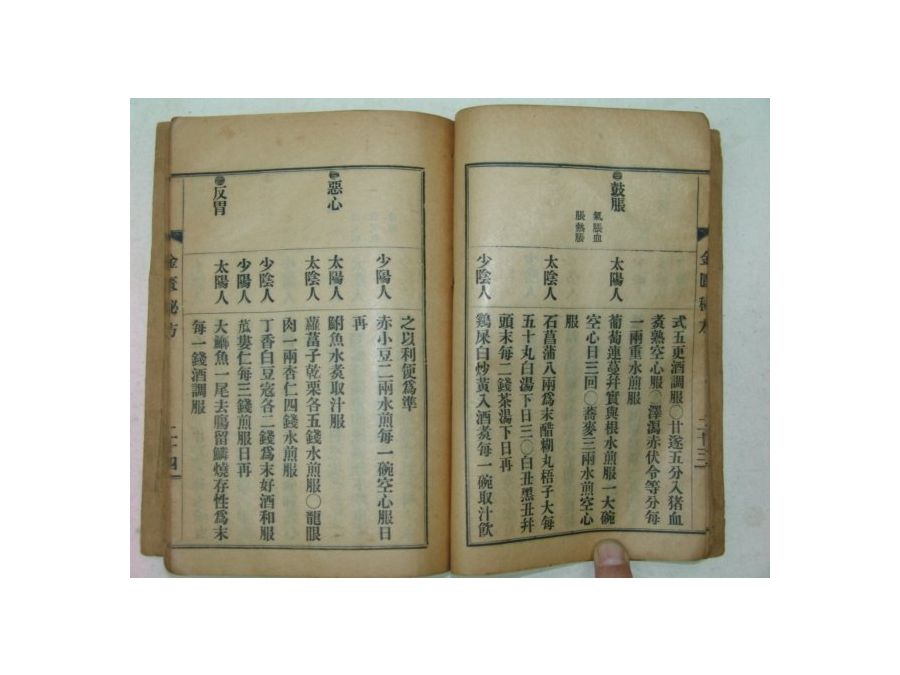 金匱秘方
二十三
式五更酒調服○甘遂五分入猪血
煮熟空心服○澤瀉赤伏令等分每
一兩重水煎服
鼓脹
氣脹血
脹熱脹
太陽人
葡萄連蔓幷實與根水煎服一大碗
空心日三回○蕎麥三兩水煎空心
服
太陰人
石菖蒲八兩爲末醋糊丸梧子大每
五十丸白湯下日三○白丑黑丑幷
頭末每二錢茶湯下日再
少陰人
鷄屎白炒黃入酒煮每一碗取汁飮
之以利便爲準
少陽人
赤小豆二兩水煎每一碗空心服日
再
惡心
太陽人
鮒魚水煮取汁服
太陰人
蘿葍子乾栗各五錢水煎服○龍眼
肉一兩杏仁四錢水煎服
少陰人
丁香白豆寇各二錢爲末好酒和服
少陽人
苽蔞仁每三錢煎服日再
反胃
太陽人
大鯽魚一尾去膓留鱗燒存性爲末
每一錢酒調服
金匱秘方
二十四